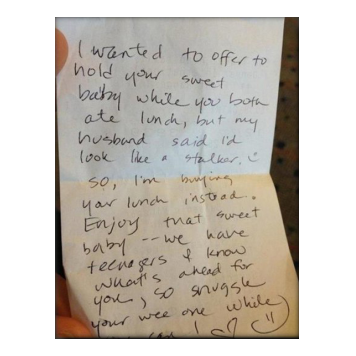 I wanted to offer to
hold your sweet
baby while you both
ate lunch, but my
husband said I'd
look like a stalker. :)
So, I'm buying
your lunch instead.
Enjoy that sweet
baby -- we have
teenagers & know
what's ahead for
you, so snuggle
your wee one while